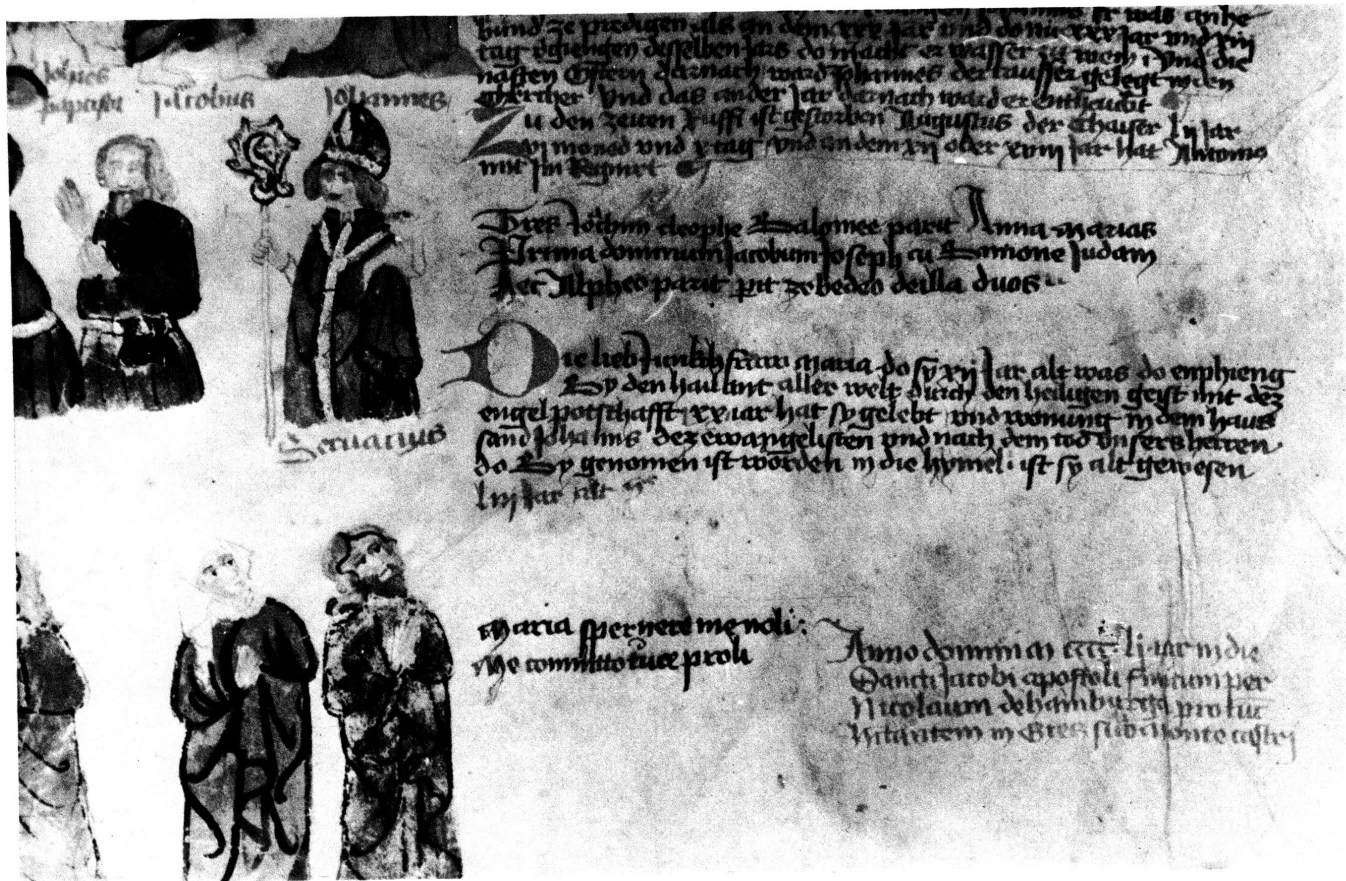 Johnes
bapptista Jacobus Johannes
Servacius
er was anhe
bund ze predigen als an dem xxx Jar vnd do nu xxx Jar vnd xiij
tag vergiengen deselben Jars do macht er wasser zu wein vnd die
nasten Ostern darnach ward Johannes der tauffer gelegt in den
chercher vnd das ander Jar darnach ward er enthaubt
Zu den zeiten ist gestorben Augustus der Chaiser Lij Jar
vj moned vnd x tag vnd an dem xij oder Jar hat Anthonio
mit Im Regnirt
Tres Jochim cleophe Salomee parit Anna marias
Prima dominum Jacobum Joseph cu Simone Judam
Fert Alpheo parit pit zebedeo de illa duos
Die lieb Junkhfraw Maria do sy xij Jar alt was do emphieng
Sy den hailant aller welt durch den heiligen geist mit dez
engel potschafft xx iar hat sy gelebt vnd wonung in dem haus
sand Johanns dez ewangelisten vnd nach dem tod vnsers herren
do Sy genomen ist worden in die hymel ist sy alt gewesen
Lxij Jar alt
Maria spernere me noli:
Me committo tuce proli
Anno domini M cccc li iar in die
Sancti Jacobi apostoli finitum per
Nicolaum de hamburga pro tuc
sub Monte castri